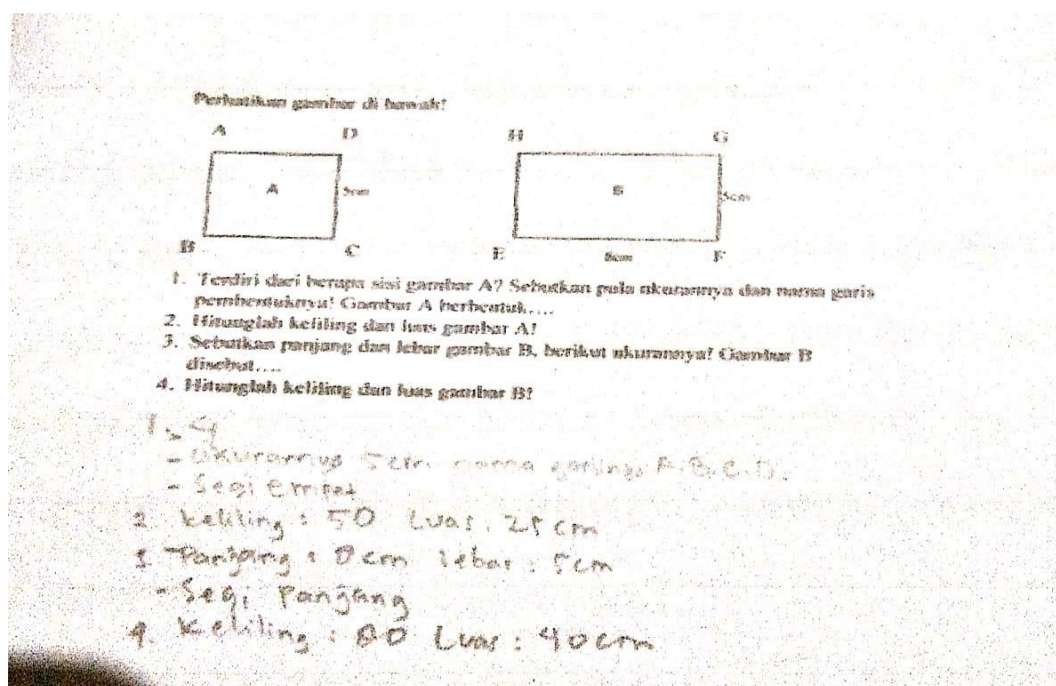 Perhatikan gambar di bawah!
A D H G
A 5cm B 5cm
B C E 8cm F
1. Terdiri dari berapa sisi gambar A? Sebutkan pula ukurannya dan nama garis
pembentuknya! Gambar A berbentuk....
2. Hitunglah keliling dan luas gambar A!
3. Sebutkan panjang dan lebar gambar B, berikut ukurannya! Gambar B
disebut....
4. Hitunglah keliling dan luas gambar B?
1. 4
- Ukurannya 5cm. nama A.B.C.D.
- Segi empat
2. keliling : 50 Luas. 25 cm
3. Panjang : 8cm lebar : 5cm
- Segi Panjang
4. Keliling : 80 Luas : 40cm